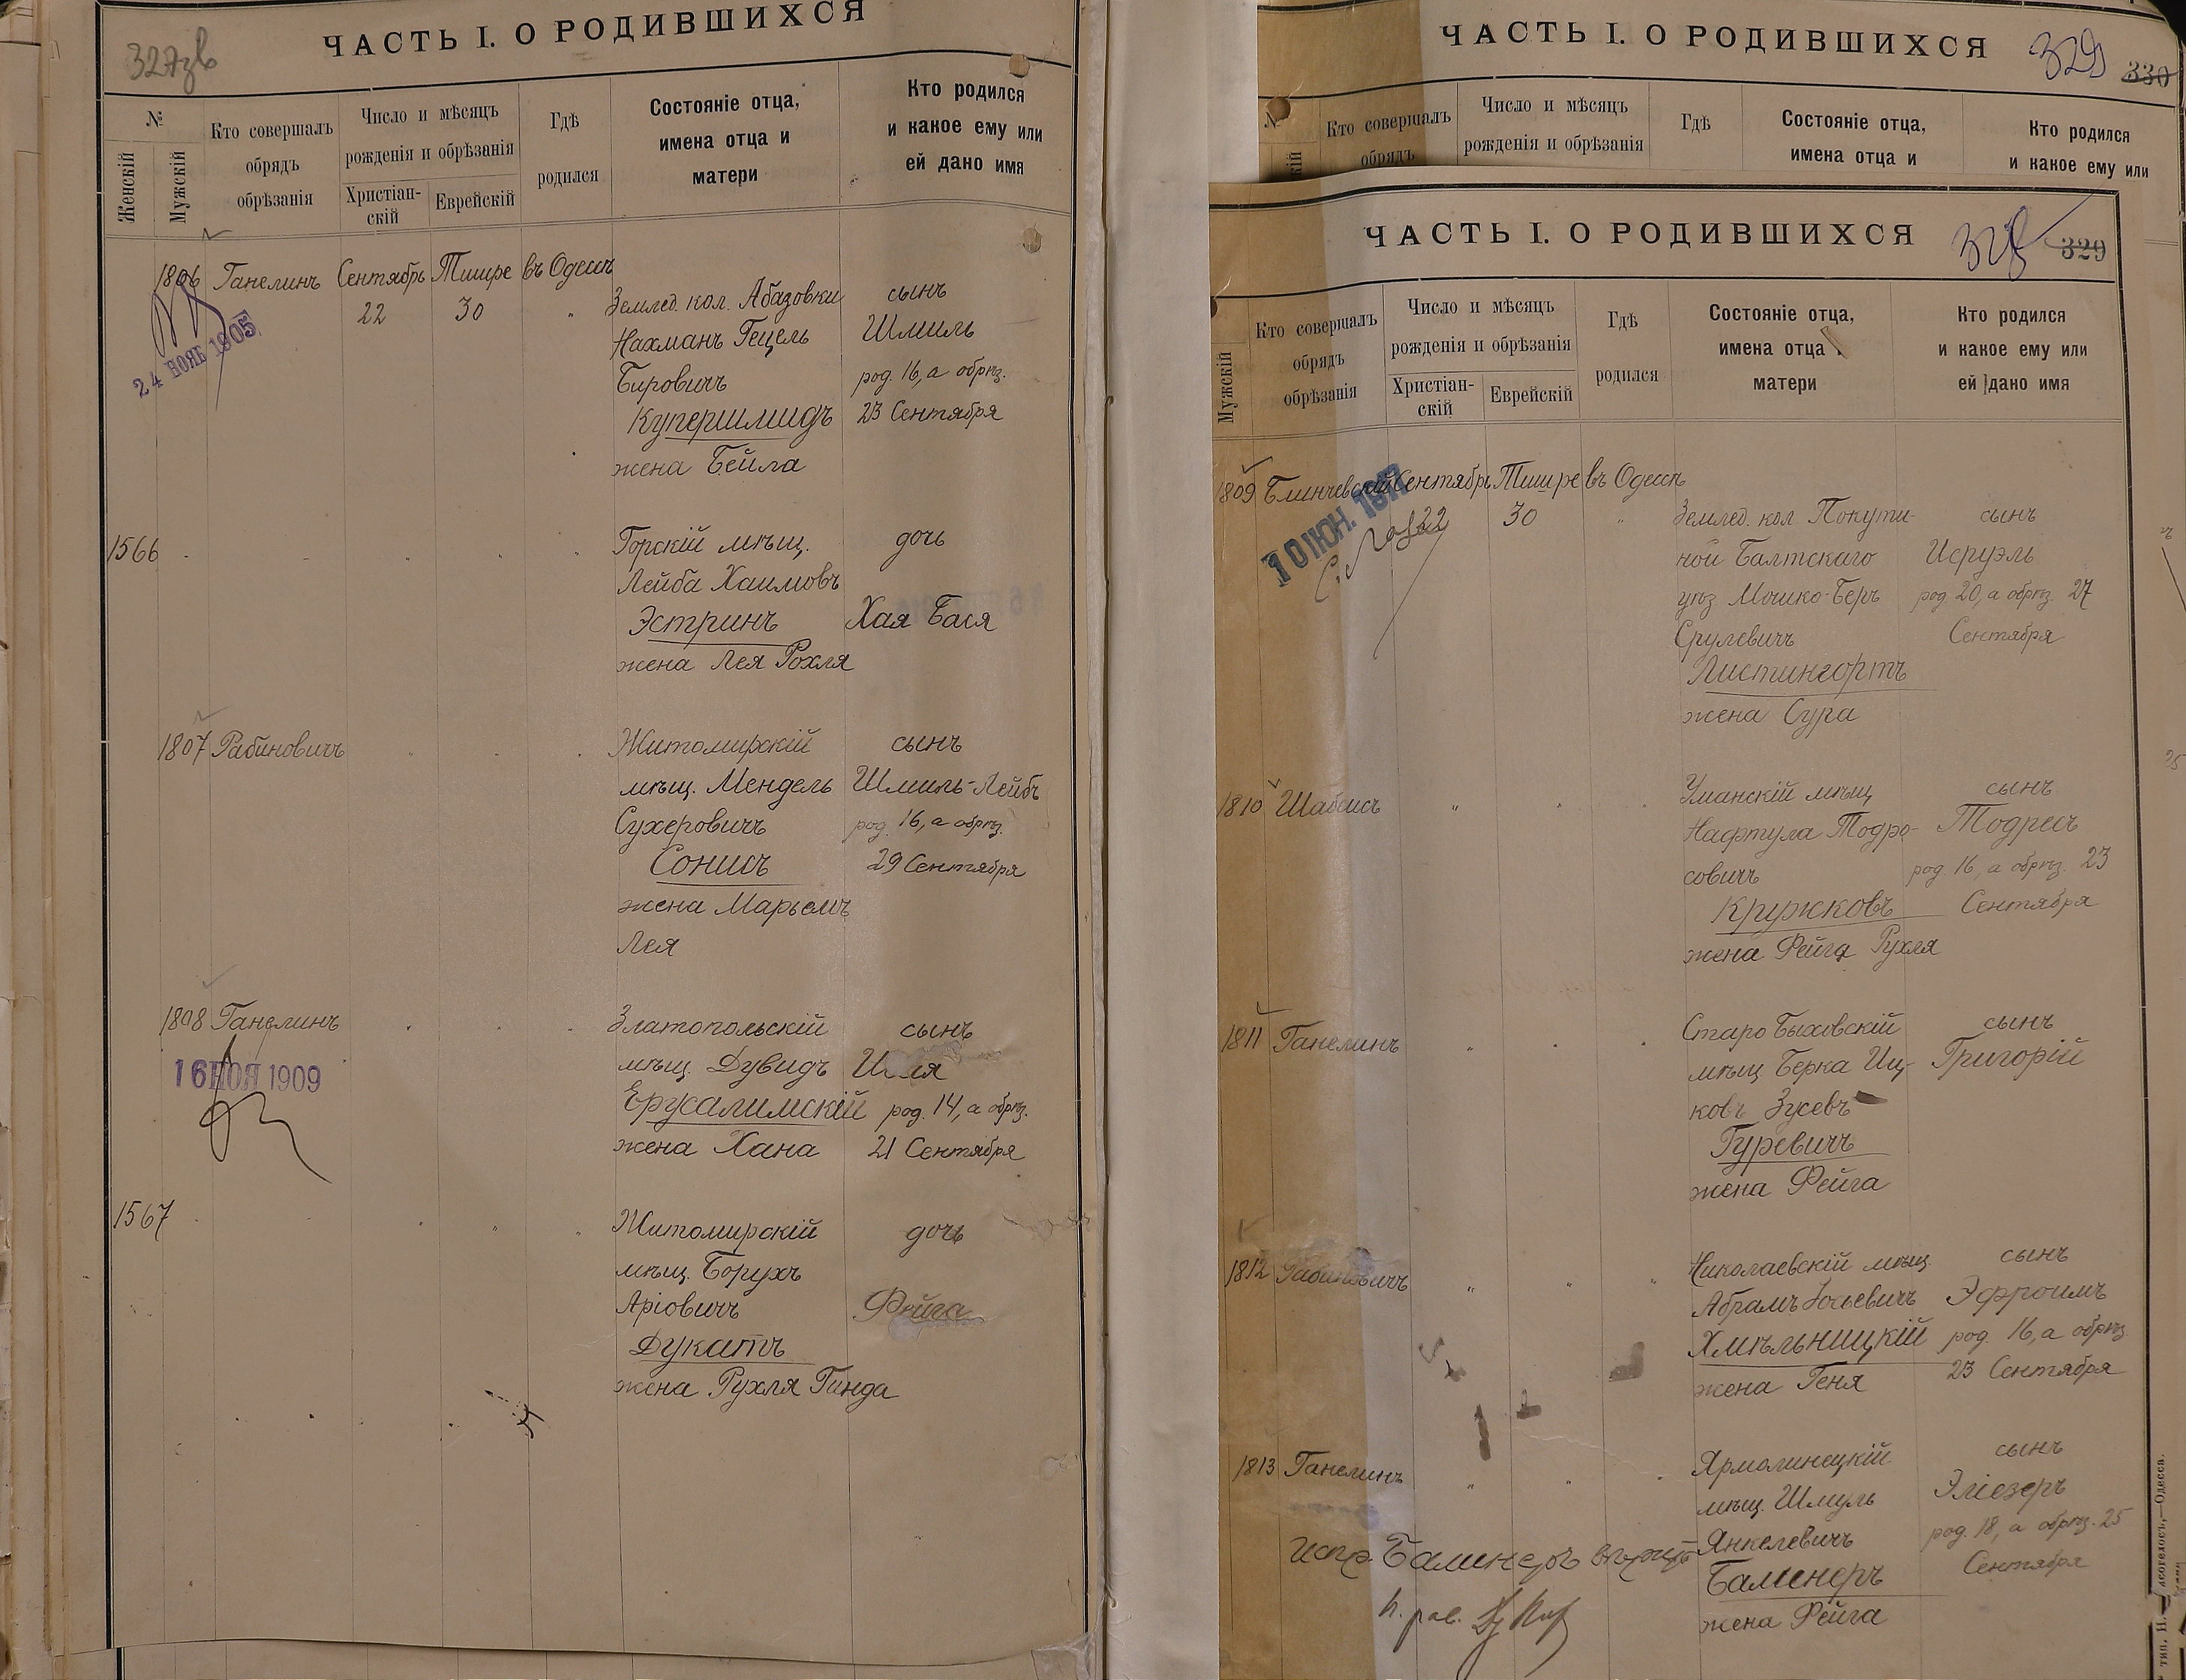 327зв
ЧАСТЬ I. О РОДИВШИХСЯ
№
Женскій
Мужскій
Кто совершалъ
обрядъ
обрѣзанія
Число и мѣсяцъ
рожденія и обрѣзанія
Христіан-
скій
Еврейскій
Гдѣ
родился
Состояніе отца,
имена отца и
матери
Кто родился
и какое ему или
ей дано имя
1806 Ганелинъ Сентябрь Тишре въ Одессѣ
22 30 "
24 НОЯБ 1905
Землед. кол. Абазовки
Нахманъ Гецель
Бировичъ
Купершмидъ
жена Бейла
сынъ
Шмиль
род. 16, а обрѣз.
23 Сентября
1566
Горскій мѣщ.
Лейба Хаимовъ
Эстринъ
жена Лея Рохля
дочь
Хая Бася
1807 Рабиновичъ
Житомирскій
мѣщ. Мендель
Сухеровичъ
Сонисъ
жена Марьемъ
Лея
сынъ
Шмиль-Лейбъ
род. 16, а обрѣз.
29 Сентября
1808 Ганелинъ
16 НОЯ 1909
Златопольскій
мѣщ. Дувидъ
Ерусалимскій
жена Хана
сынъ
род. 14, а обрѣз.
21 Сентября
1567
Житомирскій
мѣщ. Борухъ
Аріовичъ
Дукатъ
жена Рухля Гинда
дочь
Фейга
ЧАСТЬ I. О РОДИВШИХСЯ
329 330
Кто совершалъ
обрядъ
Число и мѣсяцъ
рожденія и обрѣзанія
Гдѣ
Состояніе отца,
имена отца и
Кто родился
и какое ему или
ЧАСТЬ I. О РОДИВШИХСЯ
328 329
Мужскій
Кто совершалъ
обрядъ
обрѣзанія
Число и мѣсяцъ
рожденія и обрѣзанія
Христіан-
скій
Еврейскій
Гдѣ
родился
Состояніе отца,
имена отца
матери
Кто родился
и какое ему или
ей дано имя
1809 Блинчевскій Сентябрь Тишре въ Одессѣ
22 30 "
10 ИЮН.
Землед. кол. Покути-
ной Балтскаго
уѣз Мошко-Беръ
Срулевичъ
Листингортъ
жена Сура
сынъ
Исруэль
род 20, а обрѣз. 27
Сентября
1810 Шабсисъ "
Уманскій мѣщ
Нафтула Тодро-
совичъ
Кружковъ
жена Фейга Рухля
сынъ
Тодресъ
род. 16, а обрѣз. 23
Сентября
1811 Ганелинъ "
Старо Быховскій
мѣщ Берка Иц-
ковъ Зусевъ
Гуревичъ
жена Фейга
сынъ
Григорій
1812 Рабиновичъ " " "
Николаевскій мѣщ.
Абрамъ Іосьевичъ
Хмѣльницкій
жена Геня
сынъ
Эфроимъ
род. 16, а обрѣз
23 Сентября
1813 Ганелинъ " "
Ярмолинецкій
мѣщ. Шмуль
Янкелевичъ
Балинеръ
жена Фейга
сынъ
Эліезеръ
род. 18, а обрѣз. 25
Сентября
Испр. Балинеръ вѣрить